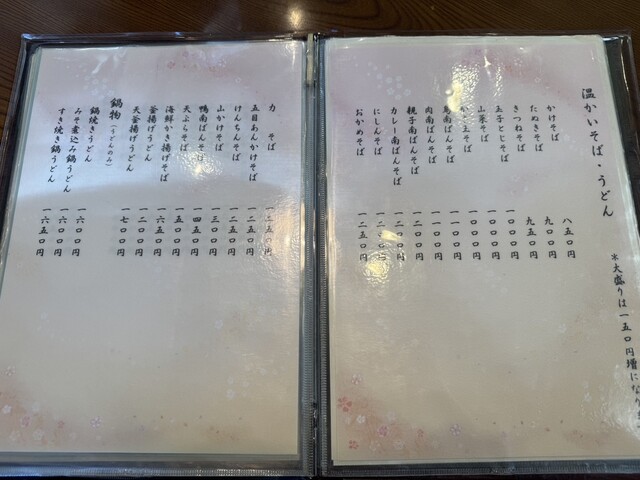 温かいそば・うどん
＊大盛りは一五〇円増になり
かけそば 八五〇円
たぬきそば 九〇〇円
きつねそば 九五〇円
玉子とじそば 一〇〇〇円
山菜そば 一〇〇〇円
玉そば 一〇〇〇円
南ばんそば
肉南ばんそば
親子南ばんそば
カレー南ばんそば
にしんそば
おかめそば 一二五〇円
力 そば 五〇円
五目あんかけそば 一二五〇円
けんちんそば 一二五〇円
山かけそば 一三〇〇円
鴨南ばんそば 一四五〇円
天ぷらそば 一五〇〇円
海鮮かき揚げそば 一六五〇円
釜揚げうどん 一二〇〇円
天釜揚げうどん 一七〇〇円
鍋物（うどんのみ）
鍋焼きうどん 一六〇〇円
みそ煮込み鍋うどん 一六〇〇円
すき焼き鍋うどん 一六五〇円